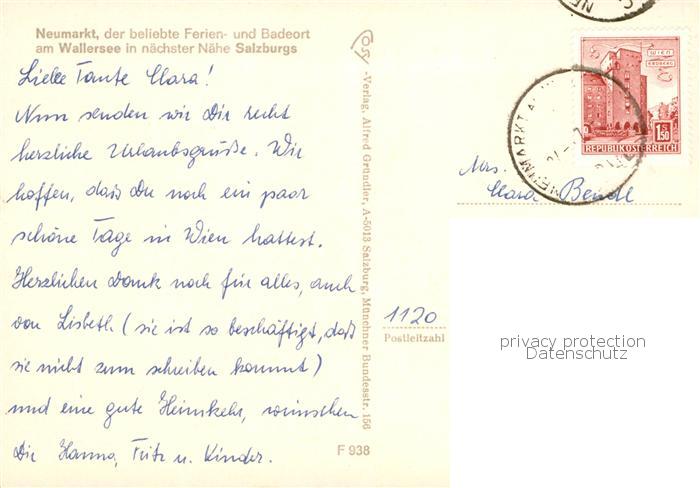 Neumarkt, der beliebte Ferien- und Badeort
am Wallersee in nächster Nähe Salzburgs
Liebe Tante Clara!
Nun senden wir Dir recht
herzliche Urlaubsgrüße. Wir
hoffen, daß Du noch ein paar
schöne Tage in Wien hattest.
Herzlichen Dank noch für alles, auch
von Lisbeth (sie ist so beschäftigt, daß
sie nicht zum schreiben kommt)
und eine gute Heimkehr, wünschen
Dir Hanno, Fritz u. Kinder.
F 938
-Verlag, Alfred Gründler, A-5013 Salzburg, Münchner Bundesstr. 156
WIEN
ERDBERG
1.50
REPUBLIK ÖSTERREICH
NEUMARKT A
Mrs.
Clara Bendl
1120
Postleitzahl
privacy protection
Datenschutz